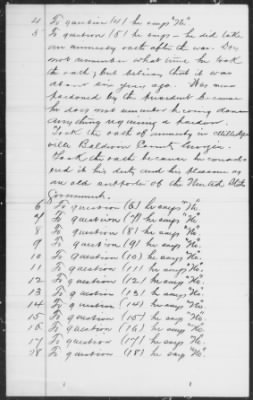 4 To question (4) he says "No".
5 To question (5) he says - he did take
an amnesty oath after the war. Does
not remember what time he took
the oath, but believes that it was
about six years ago. Was never
pardoned by the President because
he does not remember having done
anything requiring a pardon.
Took the oath of amnesty in Milledge-
ville Baldwin County Georgia.
Took the oath because he consider-
ed it his duty and his pleasure as
an old supporter of the United States
Government.
6 To question (6) he says "No".
7 To question (7) he says "No".
8 To question (8) he says "No".
9 To question (9) he says "No".
10 To question (10) he says "No".
11 To question (11) he says "No".
12 To question (12) he says "No".
13 To question (13) he says "No".
14 To question (14) he says "No".
15 To question (15) he says "No".
16 To question (16) he says "No".
17 To question (17) he says "No".
18 To question (18) he says "No".